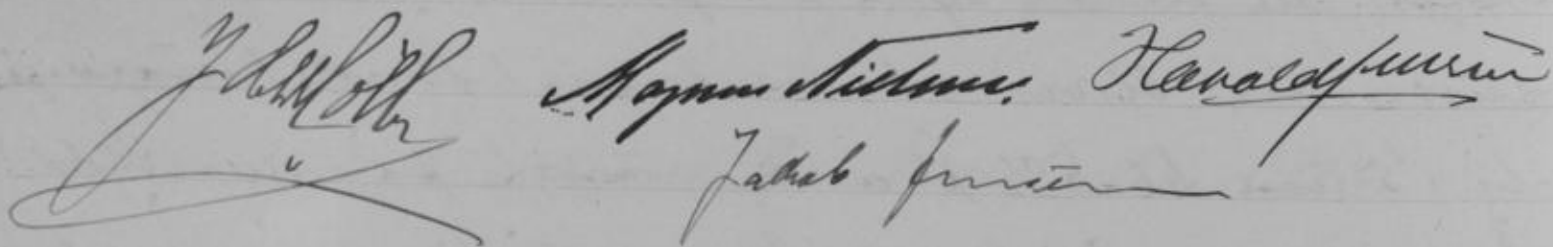 Magnus Nielsen. Harald Jensen
Jakob Jensen